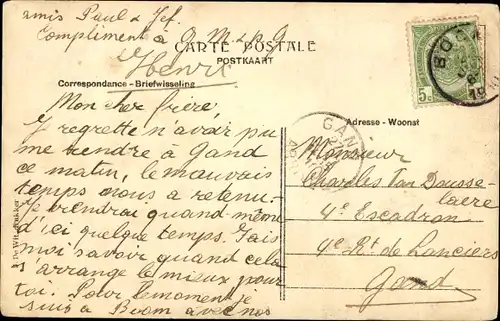 amis Paul & Jef.
Compliment à G M & p G
Henri
CARTE POSTALE
POSTKAART
Correspondance - Briefwisseling
Mon cher frère
Je regrette n'avoir pu
me rendre à Gand
ce matin, le mauvais
temps nous a retenu.
Je viendrai quand-même
d'ici quelque temps. Fais
moi savoir quand cela
s'arrange le mieux pour
toi. Pour le moment je
suis à Boom avec nos
Adresse - Woonst
Monsieur
Charles Van Dousse-
laere
4e Escadron
4e Rt de Lanciers
Gand
5c
BOOM
GAND